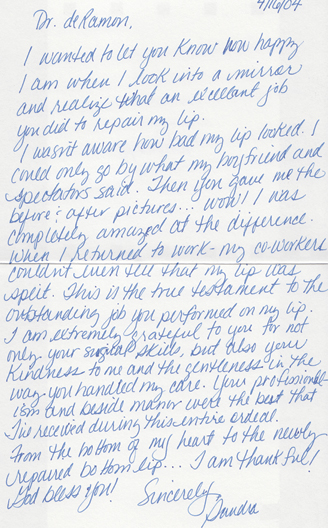 4/16/04
Dr. deRamon,
I wanted to let you know how happy
I am when I look into a mirror
and realize what an excellent job
you did to repair my lip.
I wasn't aware how bad my lip looked. I
could only go by what my boyfriend and
spectators said. Then you gave me the
before & after pictures... wow! I was
completely amazed at the difference.
When I returned to work - my co-workers
couldn't even tell that my lip was
split. This is the true testament to the
outstanding job you performed on my lip.
I am extremely grateful to you for not
only your surgical skills, but also your
kindness to me and the gentleness in the
way you handled my care. Your professional-
ism and beside manor were the best that
I've received during this entire ordeal.
From the bottom of my heart to the newly
repaired bottom lip... I am thankful!
God bless you! Sincerely,
Sandra